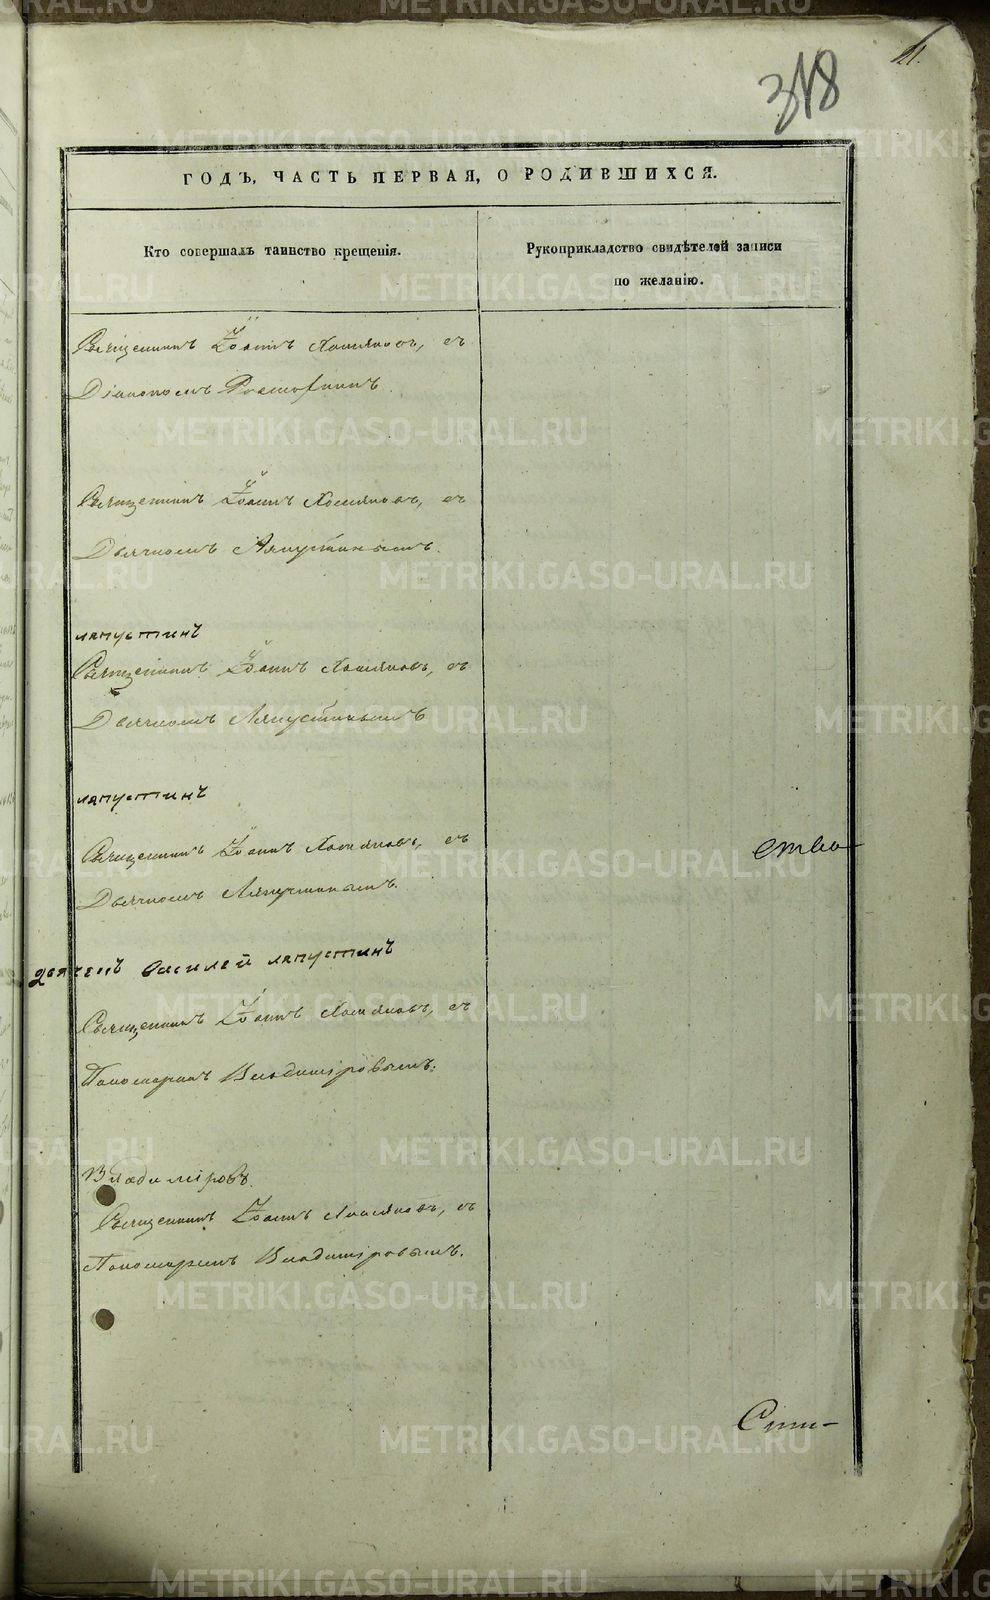 318
ГОДЪ, ЧАСТЬ ПЕРВАЯ, О РОДИВШИХСЯ.
Кто совершалъ таинство крещенія.
Рукоприкладство свидѣтелей записи
по желанію.
Священникъ Іоаннъ Хомяковъ, съ
Діакономъ
Священникъ Іоаннъ Хомяковъ, съ
Дьячкомъ Ляпустинымъ.
ляпустинъ
Священникъ Іоаннъ Хомяковъ, съ
Дьячкомъ Ляпустинымъ
ляпустинъ
Священникъ Іоаннъ Хомяковъ, съ
Дьячкомъ Ляпустинымъ.
ства
дьячекъ василей ляпустинъ
Священникъ Іоаннъ Хомяковъ, съ
Пономаремъ Владиміровымъ.
Владиміровъ.
Священникъ Іоаннъ Хомяковъ, съ
Пономаремъ Владиміровымъ.
METRIKI.GASO-URAL.RU